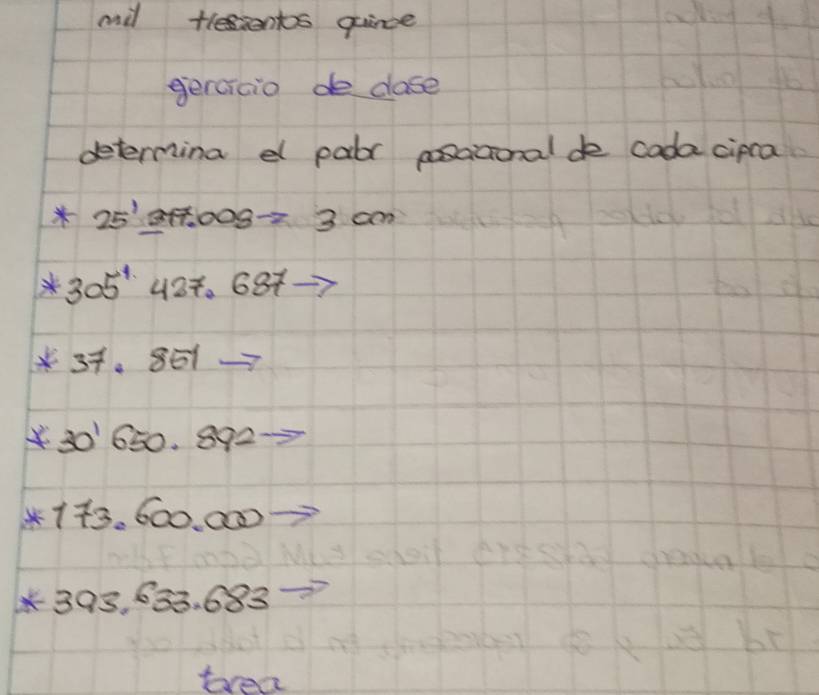 mil tresientos quince
ejercicio de clase
determina el valor posicional de cada cifra
* 25'317.008 → 3 cm
* 305'427.687 →
* 37.851 →
* 30'650.892 →
* 173.600.000 →
* 393.633.683 →
tarea